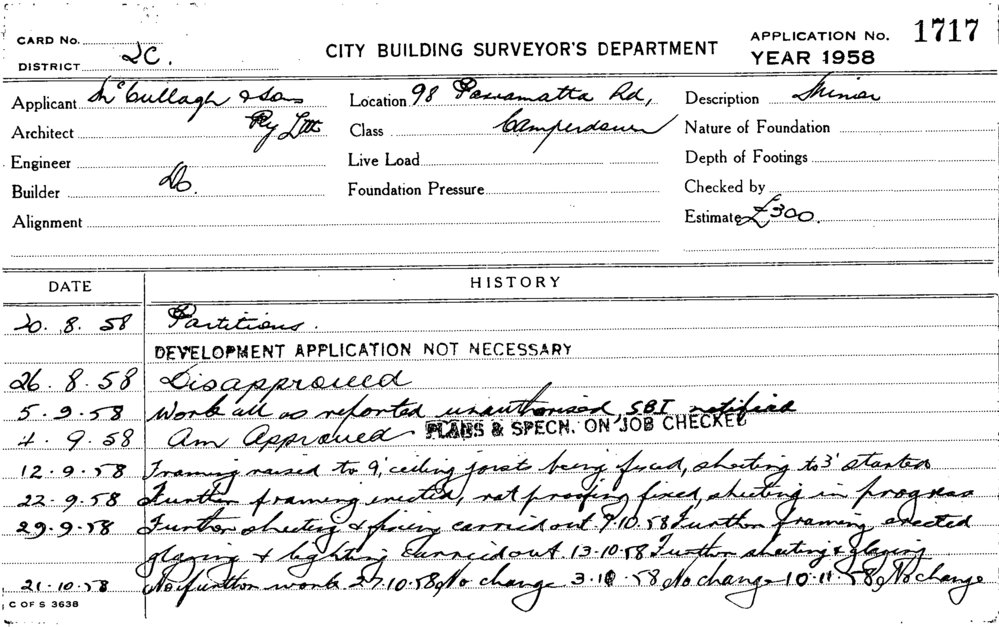 CARD No.
APPLICATION No. 1717
DISTRICT 2C.
CITY BUILDING SURVEYOR'S DEPARTMENT
YEAR 1958
Applicant McCullagh & Sons
Location 98 Parramatta Rd,
Description Minor
Architect Pty Ltd
Class Camperdown
Nature of Foundation
Engineer
Live Load
Depth of Footings
Builder Do.
Foundation Pressure
Checked by
Alignment
Estimate £300.
DATE HISTORY
20. 8. 58 Partitions.
DEVELOPMENT APPLICATION NOT NECESSARY
26. 8. 58 Disapproved
5. 9. 58 Work all as reported unauthorised, SBI notified
4. 9. 58 Am Approved PLANS & SPECN. ON JOB CHECKED
12. 9. 58 Framing raised to 9', ceiling joists being fixed, sheeting to 3' started
22. 9. 58 Further framing erected, rat proofing fixed, sheeting in progress
29. 9. 58 Further sheeting & fixing carried out 7.10.58 Further framing erected
glazing & lighting carried out 13.10.58 Further sheeting & glazing
21. 10. 58 No further work 27.10.58, No change 58 No change 10.11.58, No change
C OF S 3638